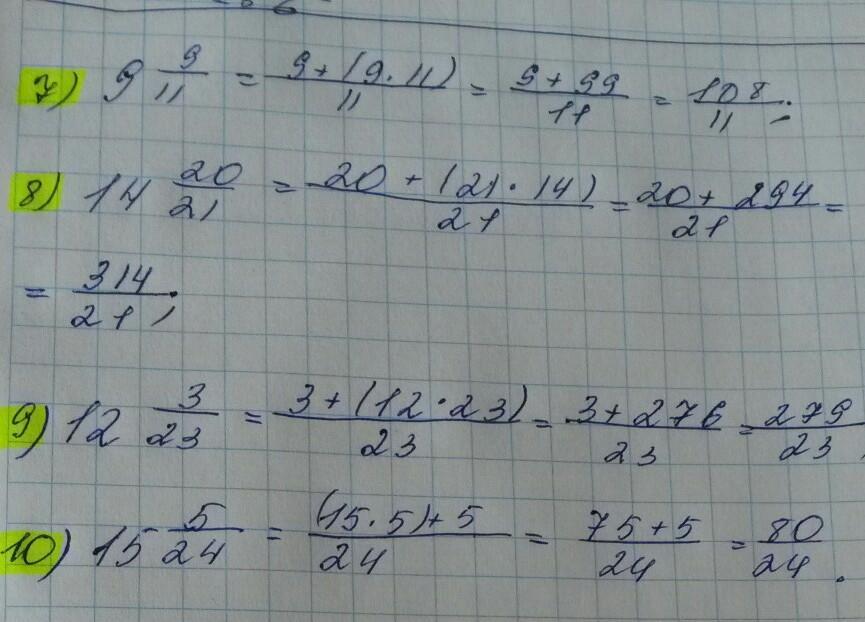 7) 9 9/11 = 9+(9·11)/11 = 9+99/11 = 108/11;
8) 14 20/21 = 20+(21·14)/21 = 20+294/21 =
= 314/21;
9) 12 3/23 = 3+(12·23)/23 = 3+276/23 = 279/23;
10) 15 5/24 = (15·5)+5/24 = 75+5/24 = 80/24.